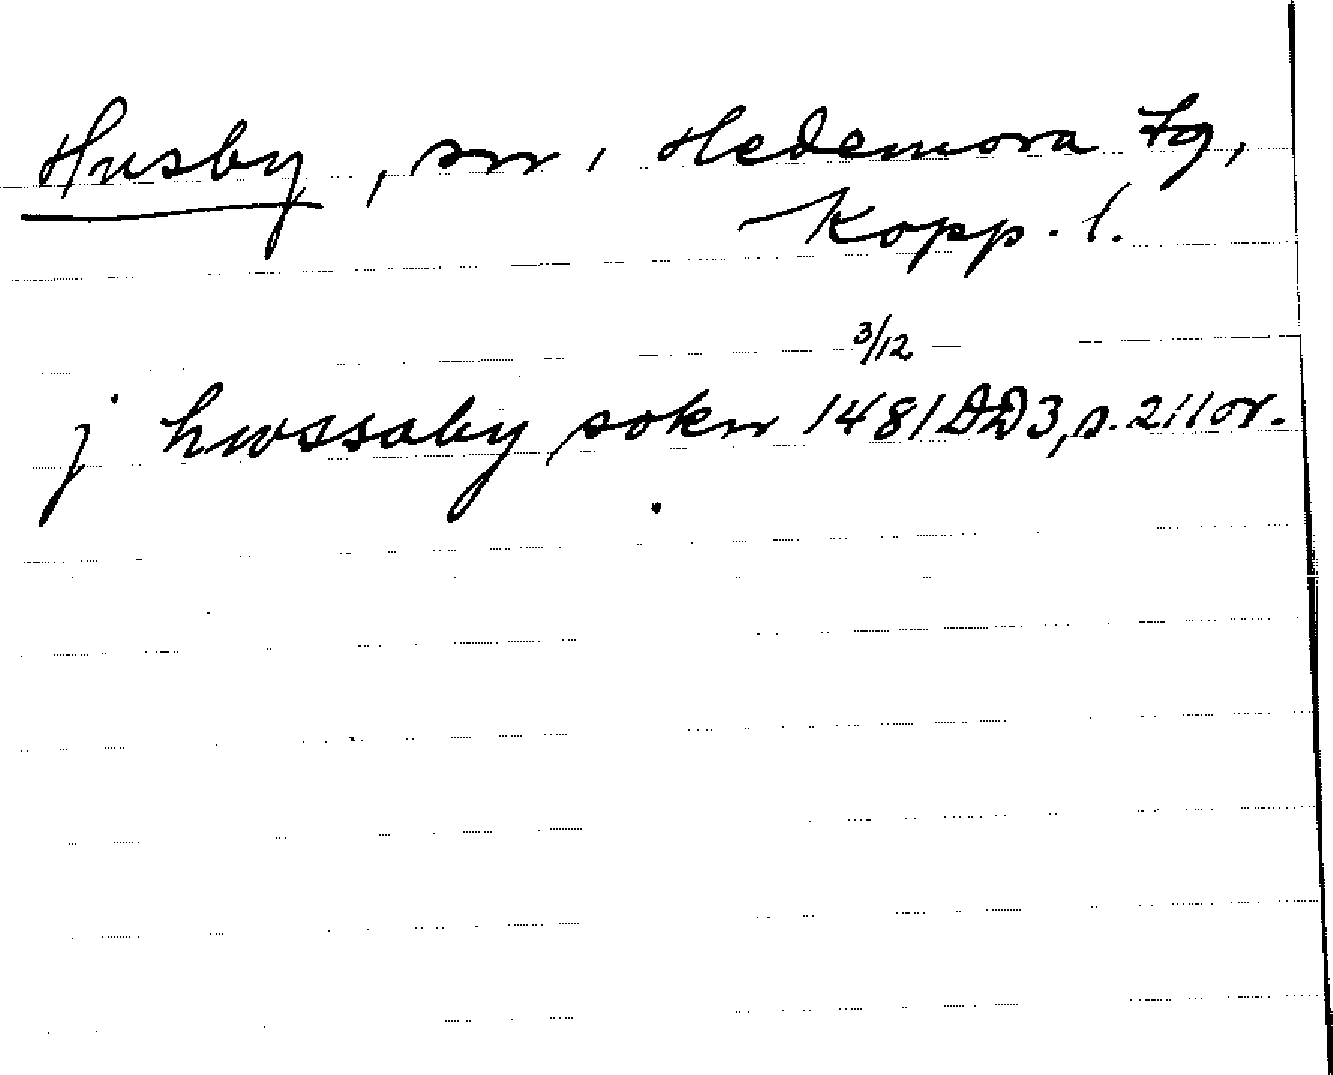 Husby, sn, Hedemora tg,
Kopp. l.
3/12
j hwssaby sokn 1481 DD3, s. 211 or.